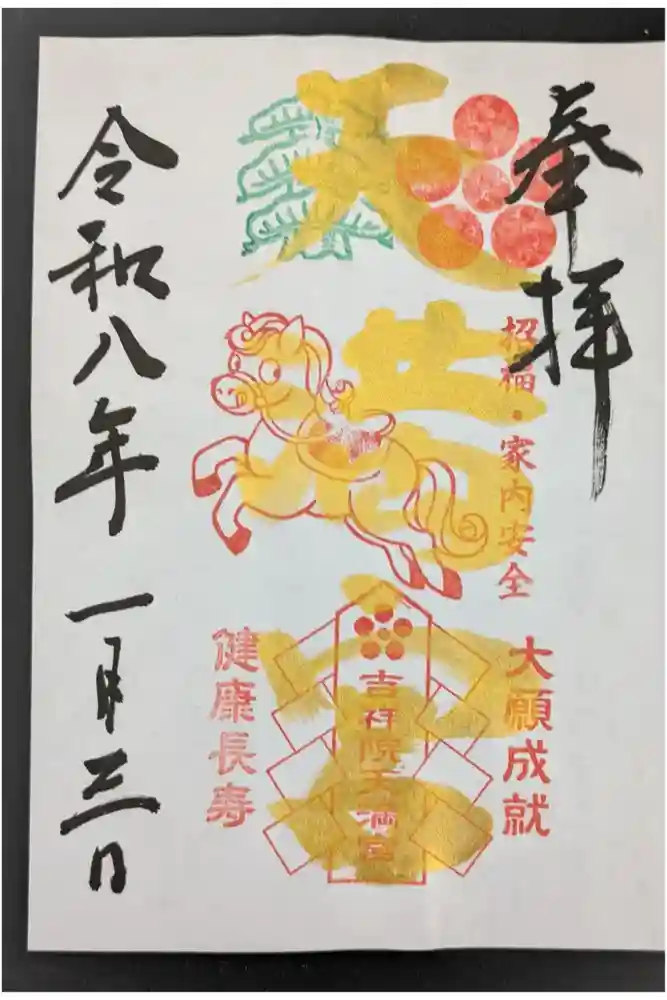 奉拝
招福・家内安全
大願成就
天満宮
吉祥院天満宮
健康長寿
令和八年一月三日